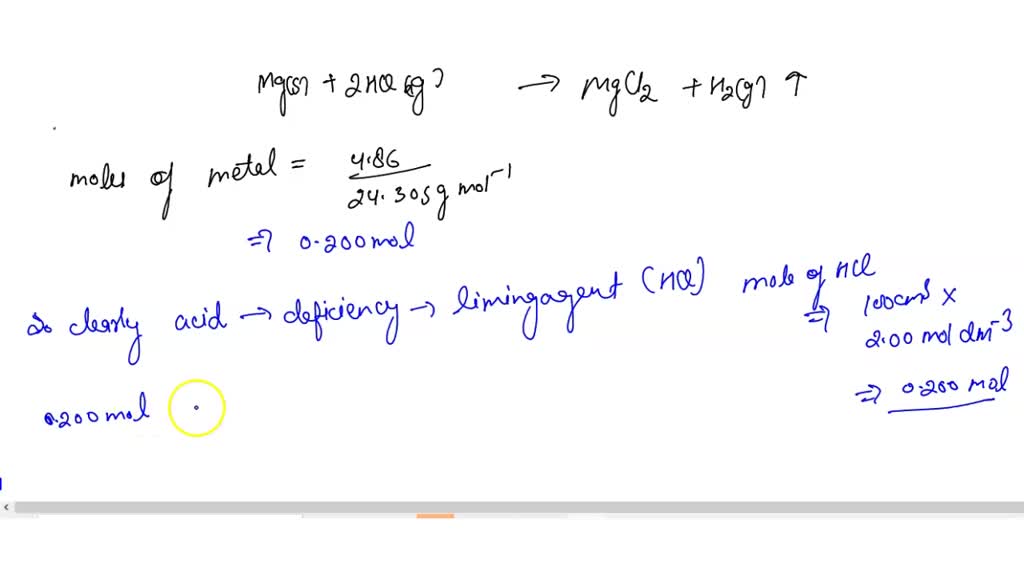 Mg(s) + 2HCl(g) → MgCl2 + H2(g) ↑
moles of metal = 4.86
24.305g mol-1
⇒ 0.200mol
So clearly acid → deficiency → limingagent (HCl) mole of HCl
⇒ 100cm3 ×
2.00 mol dm-3
⇒ 0.200 mol
0.200mol